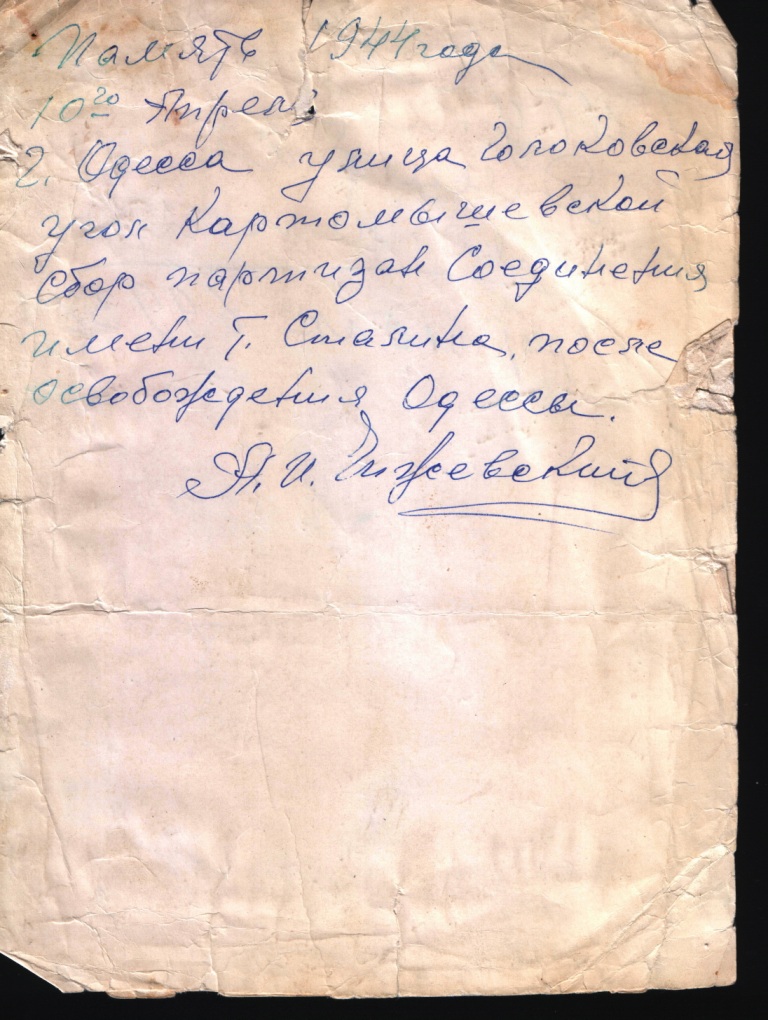 Память 1944 года
10го Апреля
г. Одесса улица Головковская
угол Картомышевской
сбор партизан Соединения
имени Т. Сталина, после
освобождения Одессы.
А. И. Чижевский